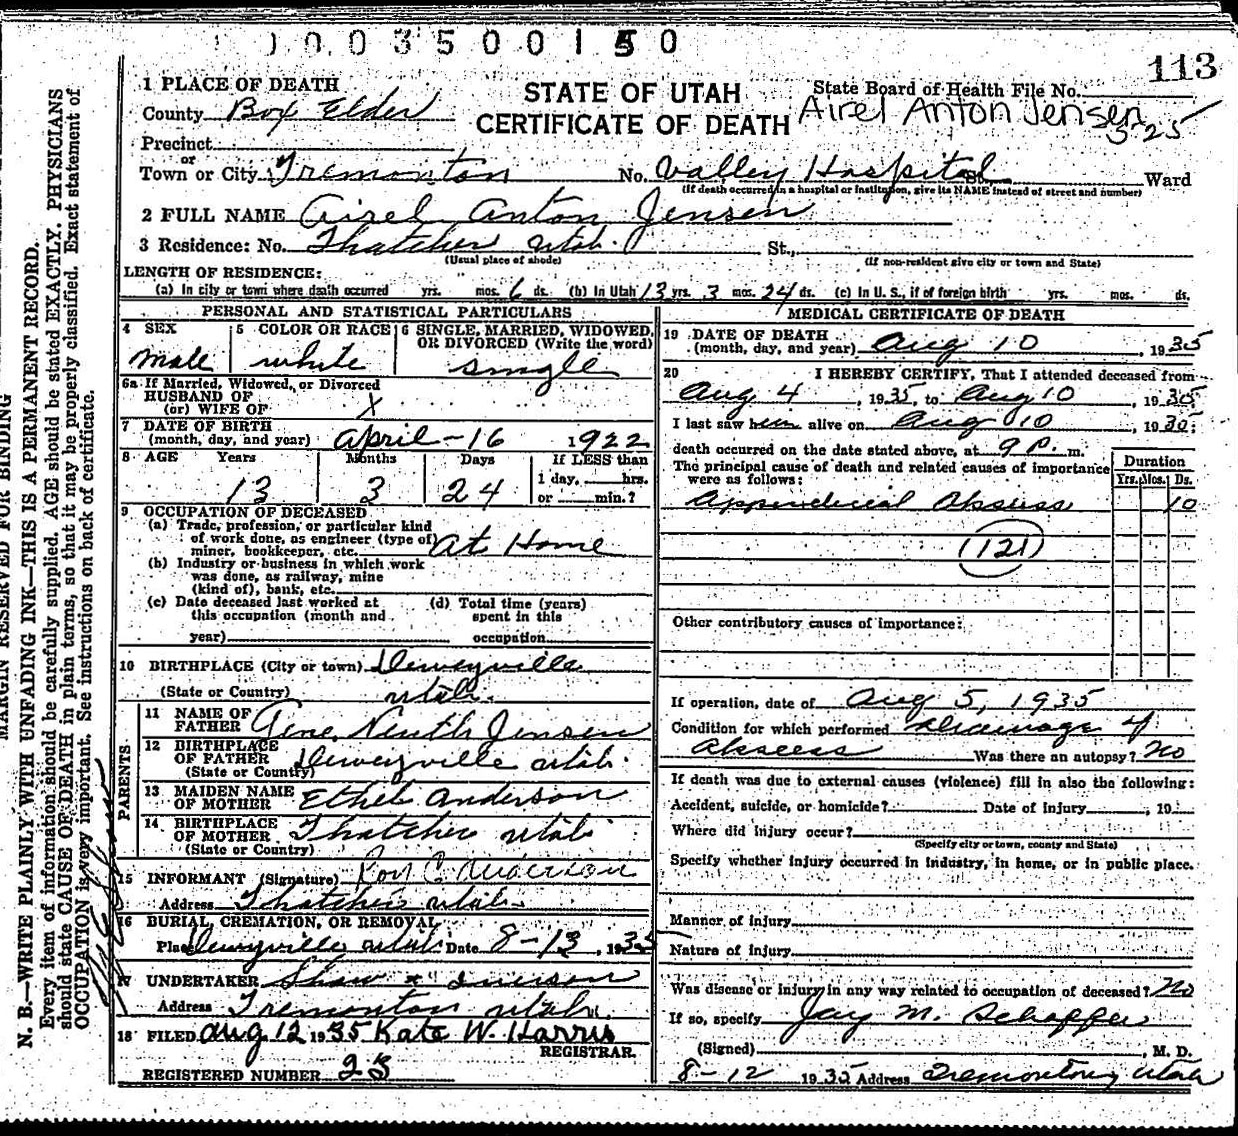 1003500150
113
1 PLACE OF DEATH
County Box Elder
STATE OF UTAH
CERTIFICATE OF DEATH
State Board of Health File No.
Airel Anton Jensen
3-25
Precinct
or
Town or City Tremonton No. Valley Hospital St. Ward
(If death occurred in a hospital or institution, give its NAME instead of street and number)
2 FULL NAME Airel Anton Jensen
3 Residence: No. Thatcher Utah. St.,
(Usual place of abode) (If non-resident give city or town and State)
LENGTH OF RESIDENCE:
(a) In city or town where death occurred yrs. mos. 6 ds. (b) In Utah 13 yrs. 3 mos. 24 ds. (c) In U. S., if of foreign birth yrs. mos. ds.
PERSONAL AND STATISTICAL PARTICULARS
4 SEX
male
5 COLOR OR RACE
white
6 SINGLE, MARRIED, WIDOWED, OR DIVORCED (Write the word)
single
6a If Married, Widowed, or Divorced
HUSBAND OF
(or) WIFE OF X
7 DATE OF BIRTH
(month, day, and year) April-16 1922
8 AGE Years Months Days If LESS than
13 3 24 1 day, hrs.
or min.?
9 OCCUPATION OF DECEASED
(a) Trade, profession, or particular kind
of work done, as engineer (type of)
miner, bookkeeper, etc. At Home
(b) Industry or business in which work
was done, as railway, mine
(kind of), bank, etc.
(c) Date deceased last worked at
this occupation (month and
year)
(d) Total time (years)
spent in this
occupation
10 BIRTHPLACE (City or town) Deweyville
(State or Country) Utah.
PARENTS
11 NAME OF
FATHER Jensen
12 BIRTHPLACE
OF FATHER Deweyville Utah.
(State or Country)
13 MAIDEN NAME
OF MOTHER Ethel Anderson
14 BIRTHPLACE
OF MOTHER Thatcher Utah
(State or Country)
15 INFORMANT (Signature) Roy C Anderson
Address Thatcher Utah.
16 BURIAL, CREMATION, OR REMOVAL
Place Deweyville Utah Date 8-13, 1935
17 UNDERTAKER Shaw & Iverson
Address Tremonton Utah.
18 FILED Aug 12 1935 Kate W. Harris
REGISTRAR.
REGISTERED NUMBER 23
MEDICAL CERTIFICATE OF DEATH
19 DATE OF DEATH
(month, day, and year) Aug 10, 1935
20 I HEREBY CERTIFY, That I attended deceased from
Aug 4, 1935, to Aug 10, 1935
I last saw him alive on Aug 10, 1935;
death occurred on the date stated above, at 9 P. m.
The principal cause of death and related causes of importance
were as follows:
Duration
Yrs. Mos. Ds.
Appendicial Abscess 10
(121)
Other contributory causes of importance:
If operation, date of Aug 5, 1935
Condition for which performed drainage of
abscess Was there an autopsy? No
If death was due to external causes (violence) fill in also the following:
Accident, suicide, or homicide? Date of injury, 19
Where did injury occur?
(Specify city or town, county and State)
Specify whether injury occurred in industry, in home, or in public place.
Manner of injury
Nature of injury
Was disease or injury in any way related to occupation of deceased? No
If so, specify Jay M. Schaffer
(Signed), M. D.
8-12 1935 Address Tremonton, Utah
MARGIN RESERVED FOR BINDING
N. B.—WRITE PLAINLY WITH UNFADING INK—THIS IS A PERMANENT RECORD.
Every item of information should be carefully supplied. AGE should be stated EXACTLY. PHYSICIANS
should state CAUSE OF DEATH in plain terms, so that it may be properly classified. Exact statement of
OCCUPATION is very important. See instructions on back of certificate.